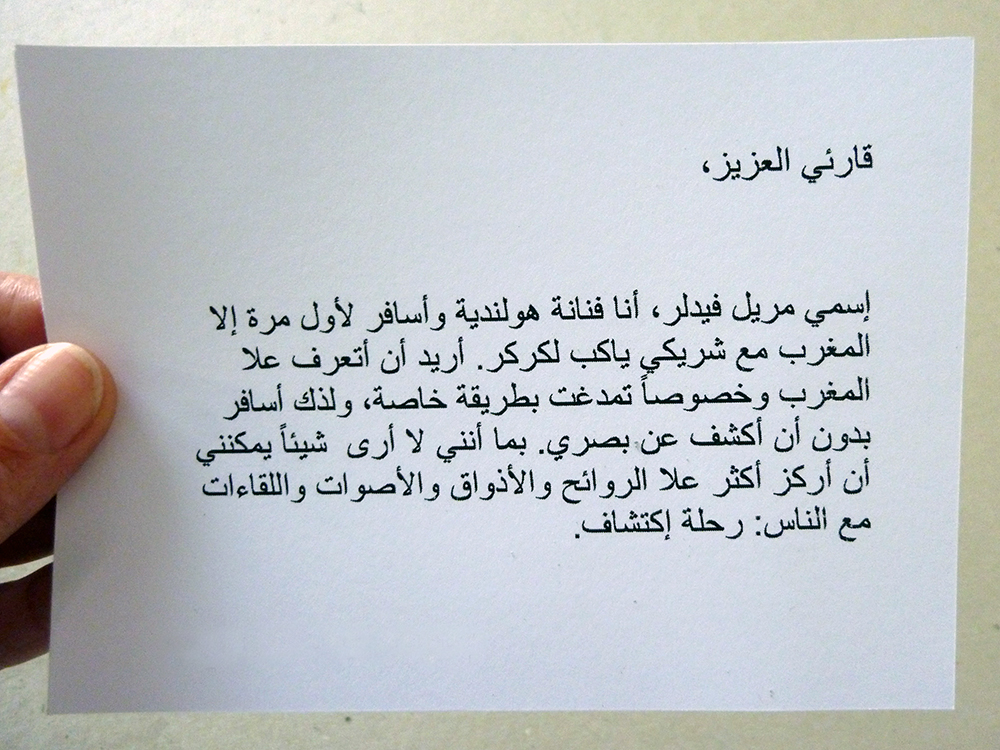 قارئي العزيز،
إسمي مريل فيدلر، أنا فنانة هولندية وأسافر لأول مرة إلا
المغرب مع شريكي ياكب لكركر. أريد أن أتعرف علا
المغرب وخصوصاً تمدغت بطريقة خاصة، ولذك أسافر
بدون أن أكشف عن بصري. بما أنني لا أرى شيئاً يمكنني
أن أركز أكثر علا الروائح والأذواق والأصوات واللقاءات
مع الناس: رحلة إكتشاف.